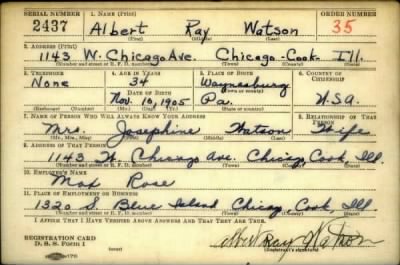 SERIAL NUMBER 1. NAME (Print) ORDER NUMBER
2437 Albert Ray Watson 35
(First) (Middle) (Last)
2. ADDRESS (Print)
1143 W. Chicago Ave. Chicago-Cook- Ill.
(Number and street or R. F. D. number) (Town) (County) (State)
3. TELEPHONE 4. AGE IN YEARS 5. PLACE OF BIRTH 6. COUNTRY OF CITIZENSHIP
None 34 Waynesburg
DATE OF BIRTH (Town or county)
Nov. 10, 1905 Pa. U.S.A.
(Exchange) (Number) (Mo.) (Day) (Yr.) (State or country)
7. NAME OF PERSON WHO WILL ALWAYS KNOW YOUR ADDRESS 8. RELATIONSHIP OF THAT PERSON
Mrs. Josephine Watson Wife
(Mr., Mrs., Miss) (First) (Middle) (Last)
9. ADDRESS OF THAT PERSON
1143 W. Chicago Ave. Chicago, Cook, Ill.
(Number and street or R. F. D. number) (Town) (County) (State)
10. EMPLOYER'S NAME
Max Rose
11. PLACE OF EMPLOYMENT OR BUSINESS
1320 S. Blue Island Chicago, Cook, Ill.
(Number and street or R. F. D. number) (Town) (County) (State)
I AFFIRM THAT I HAVE VERIFIED ABOVE ANSWERS AND THAT THEY ARE TRUE.
REGISTRATION CARD
D. S. S. Form 1 Albert Ray Watson
(Registrant's signature)